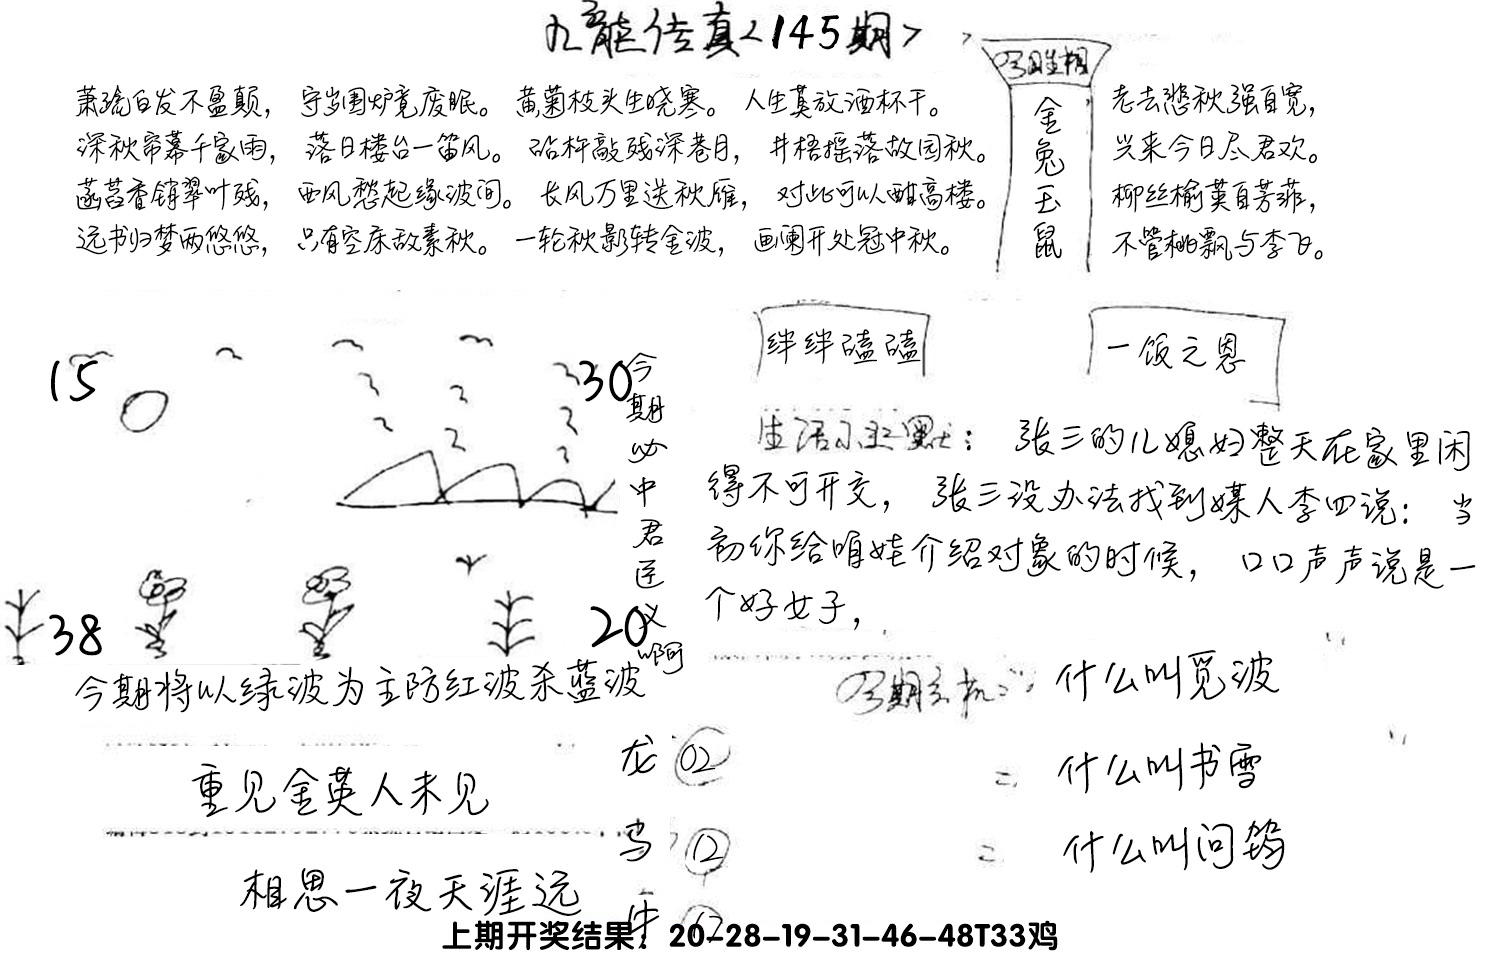 九龙传真<145期>
萧疏白发不盈颠， 守岁围炉竟废眠。 黄菊枝头生晓寒。 人生莫放酒杯干。 老去悲秋强自宽，
深秋帘幕千家雨， 落日楼台一笛风。 砧杵敲残深巷月， 井梧摇落故园秋。 兴来今日尽君欢。
菡萏香销翠叶残， 西风愁起绿波间。 长风万里送秋雁， 对此可以酣高楼。 柳丝榆荚自芳菲，
远书归梦两悠悠， 只有空床敌素秋。 一轮秋影转金波， 画阑开处冠中秋。 不管桃飘与李飞。
金兔玉鼠
绊绊磕磕
一饭之恩
15
30
38
20
今期必中君臣义啊
生活小幽默： 张三的儿媳妇整天在家里闲
得不可开交， 张三没办法找到媒人李四说： 当
初你给咱娃介绍对象的时候， 口口声声说是一
个好女子，
今期将以绿波为主防红波杀蓝波
什么叫觅波
什么叫书雪
什么叫问鹁
重见金英人未见
相思一夜天涯远
龙 02
鸟 12
牛
上期开奖结果：20-28-19-31-46-48T33鸡